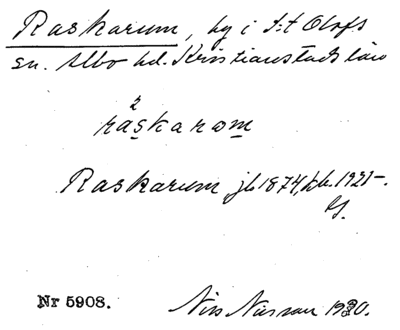 Raskarum, by i S:t Olofs
sn. Albo hd. Kristianstads län
2
raskarom
Raskarum, jb 1874, pb. 1921-.
Nr 5908. Nils Nilsson 1930.